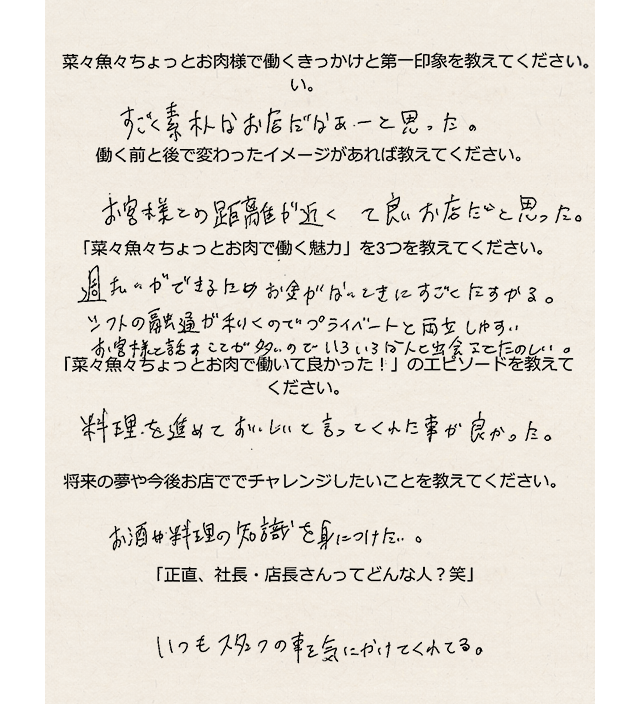 菜々魚々ちょっとお肉様で働くきっかけと第一印象を教えてください。
い。
すごく素朴なお店だなぁーと思った。
働く前と後で変わったイメージがあれば教えてください。
お客様との距離が近く て良いお店だと思った。
「菜々魚々ちょっとお肉で働く魅力」を3つを教えてください。
週払いができるため お金がないときにすごくたすかる。
シフトの融通が利くのでプライベートと両立しやすい
お客様と話すことが多いので いろいろな人と出会えてたのしい。
「菜々魚々ちょっとお肉で働いて良かった！」のエピソードを教えて
ください。
料理を進めて おいしいと言ってくれた事が良かった。
将来の夢や今後お店ででチャレンジしたいことを教えてください。
お酒や料理の知識を身につけたい。
「正直、社長・店長さんってどんな人？笑」
いつもスタッフの事を気にかけてくれてる。